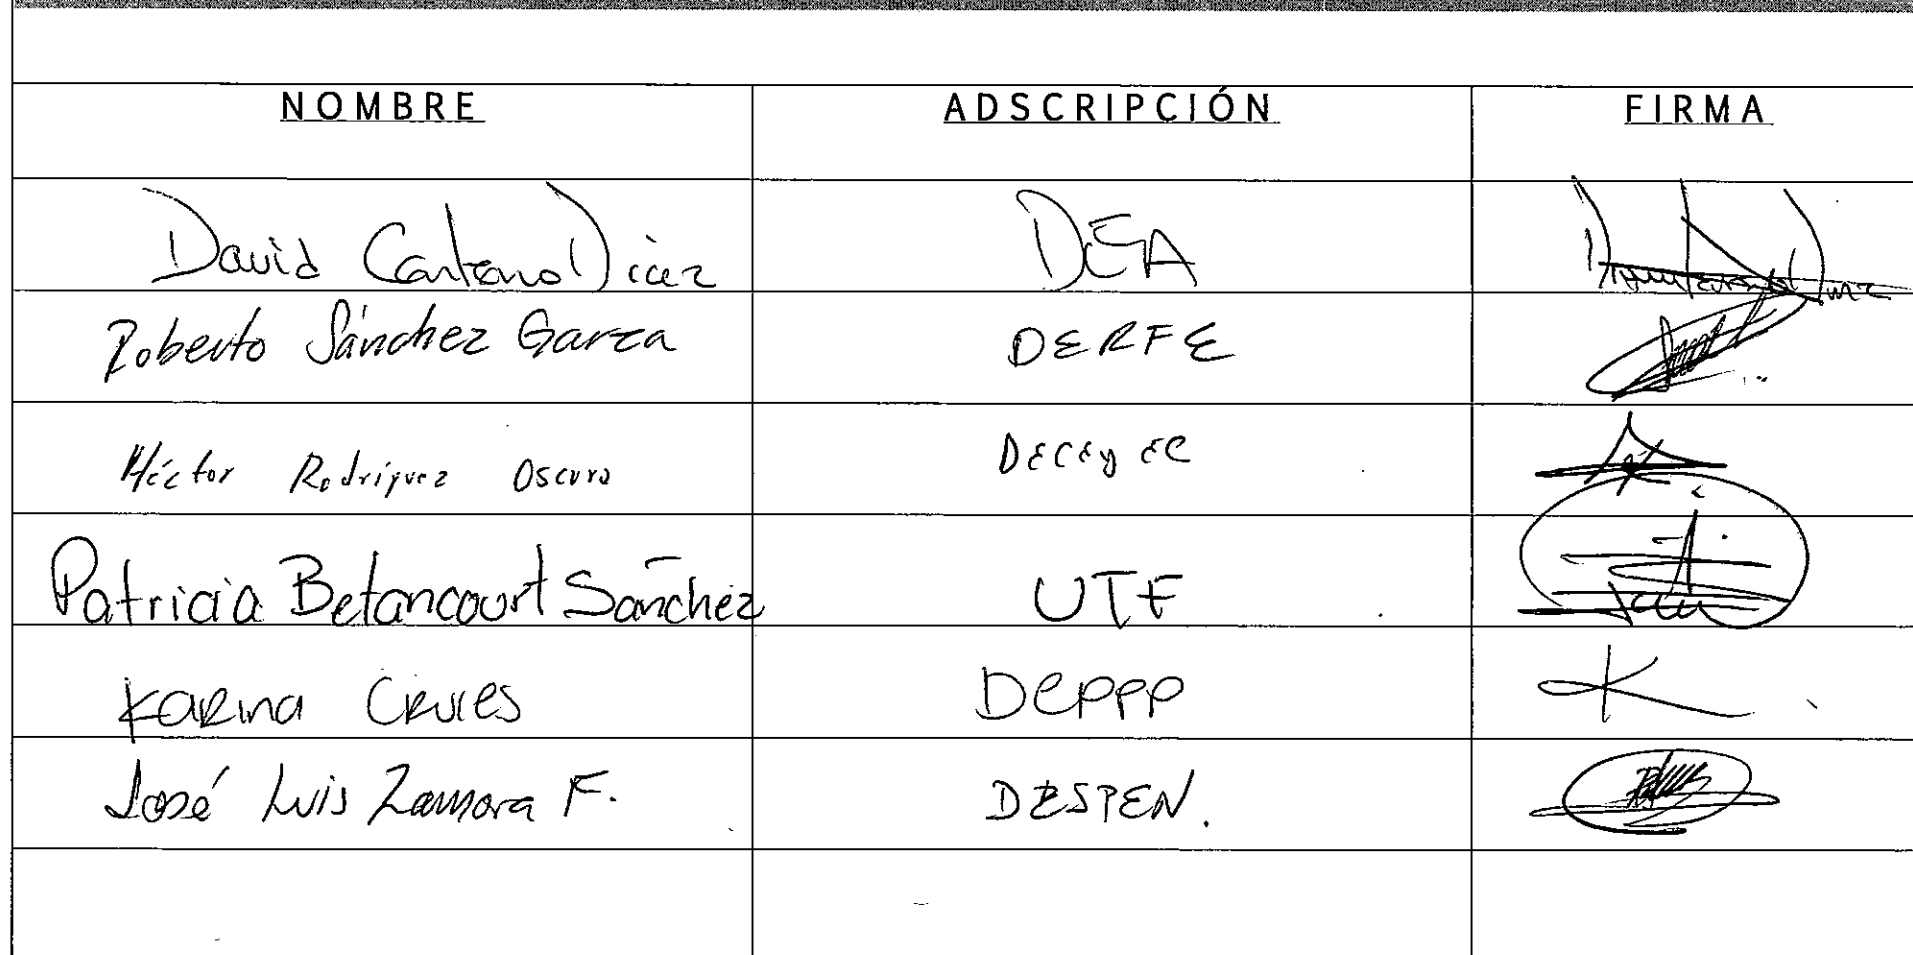 NOMBRE ADSCRIPCIÓN FIRMA
David Centeno Diaz DEA
Roberto Sánchez Garza DERFE
Héctor Rodríguez Oscuro DECEyEC
Patricia Betancourt Sánchez UTF
Karina DEPPP
José Luis Zamora F. DESPEN.